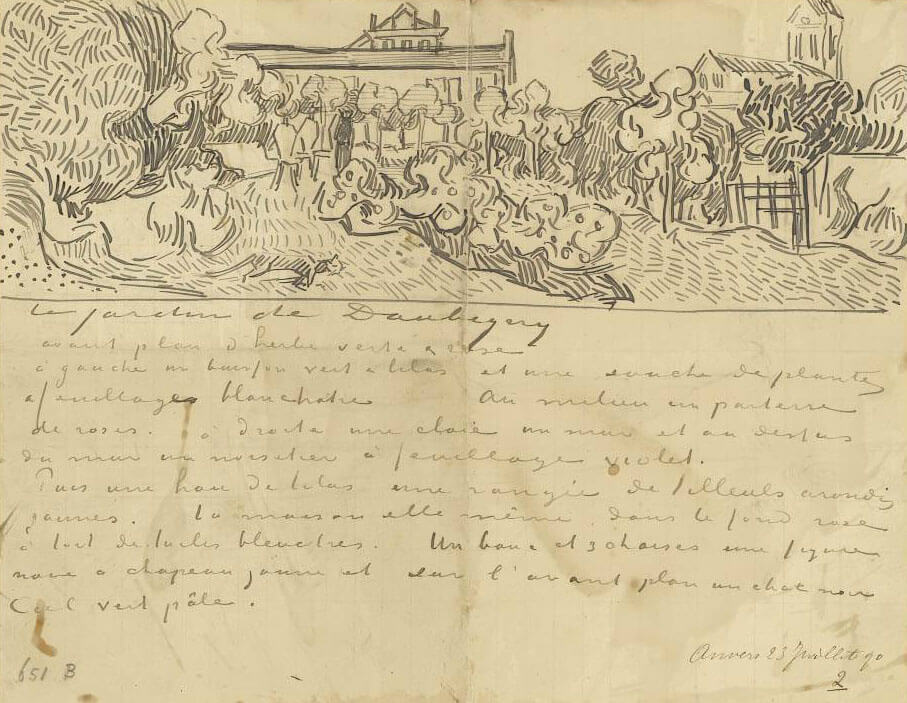 le jardin de Daubigny
avant plan d'herbe verte & rose
à gauche un buisson vert & lilas et une souche de plantes
à feuillages blanchatre Au milieu un parterre
de roses. à droite une claie un mur et au dessus
du mur un noisetier à feuillage violet.
Puis une haie de lilas une rangée de tilleuls arondis
jaunes. la maison elle même dans le fond rose
à toit de tuiles bleuatres. Un banc et 3 chaises une figure
noire à chapeau jaune et sur l'avant plan un chat noir
Ciel vert pâle.
Auvers 23 Juillet 90
2
651 B